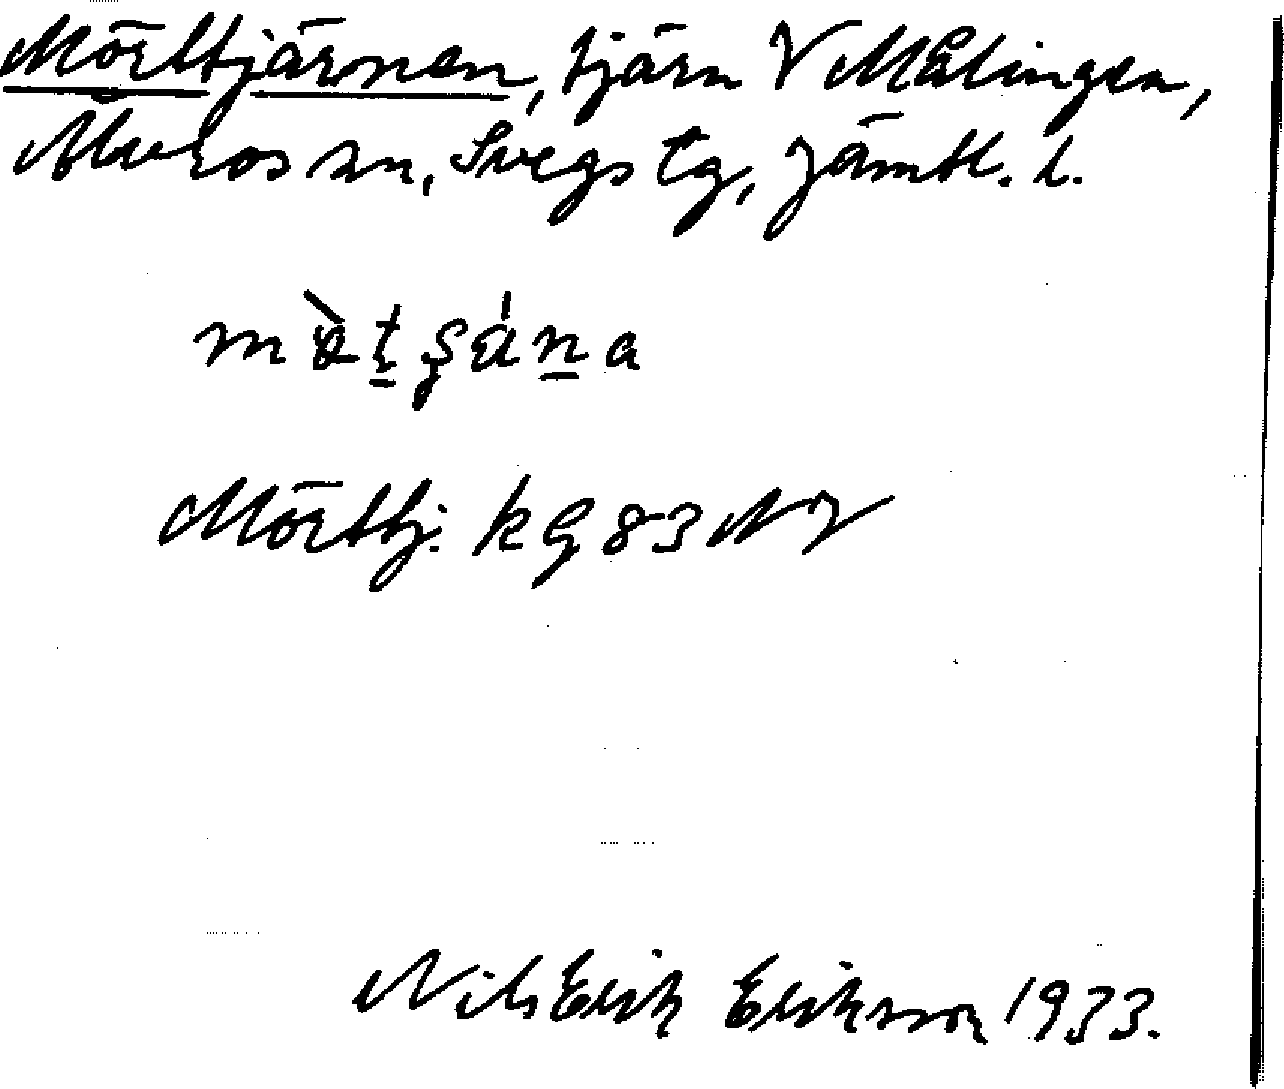 Mörttjärnen, tjärn V Målingen,
Älvros sn, Svegs tg, Jämtl. l.
Mörttj. kG 83 NV
Nils Erik Eriksson 1933.